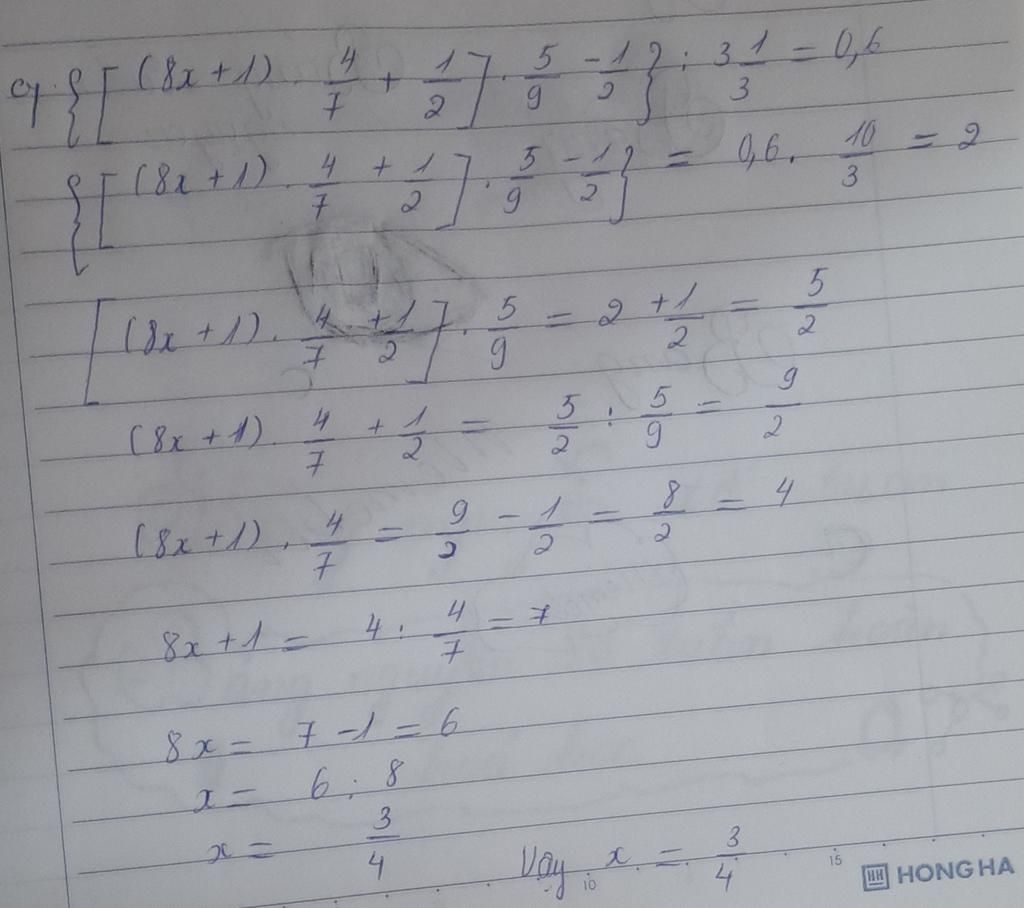 c) {[(8x+1) . 4/7 + 1/2] . 5/9 - 1/2} : 3 1/3 = 0,6
{[(8x+1) . 4/7 + 1/2] . 5/9 - 1/2} = 0,6 . 10/3 = 2
[(8x+1) . 4/7 + 1/2] . 5/9 = 2 + 1/2 = 5/2
(8x+1) . 4/7 + 1/2 = 5/2 : 5/9 = 9/2
(8x+1) . 4/7 = 9/2 - 1/2 = 8/2 = 4
8x+1 = 4 : 4/7 = 7
8x = 7 - 1 = 6
x = 6 : 8
x = 3/4
Vậy x = 3/4
10 15 HH HONG HA